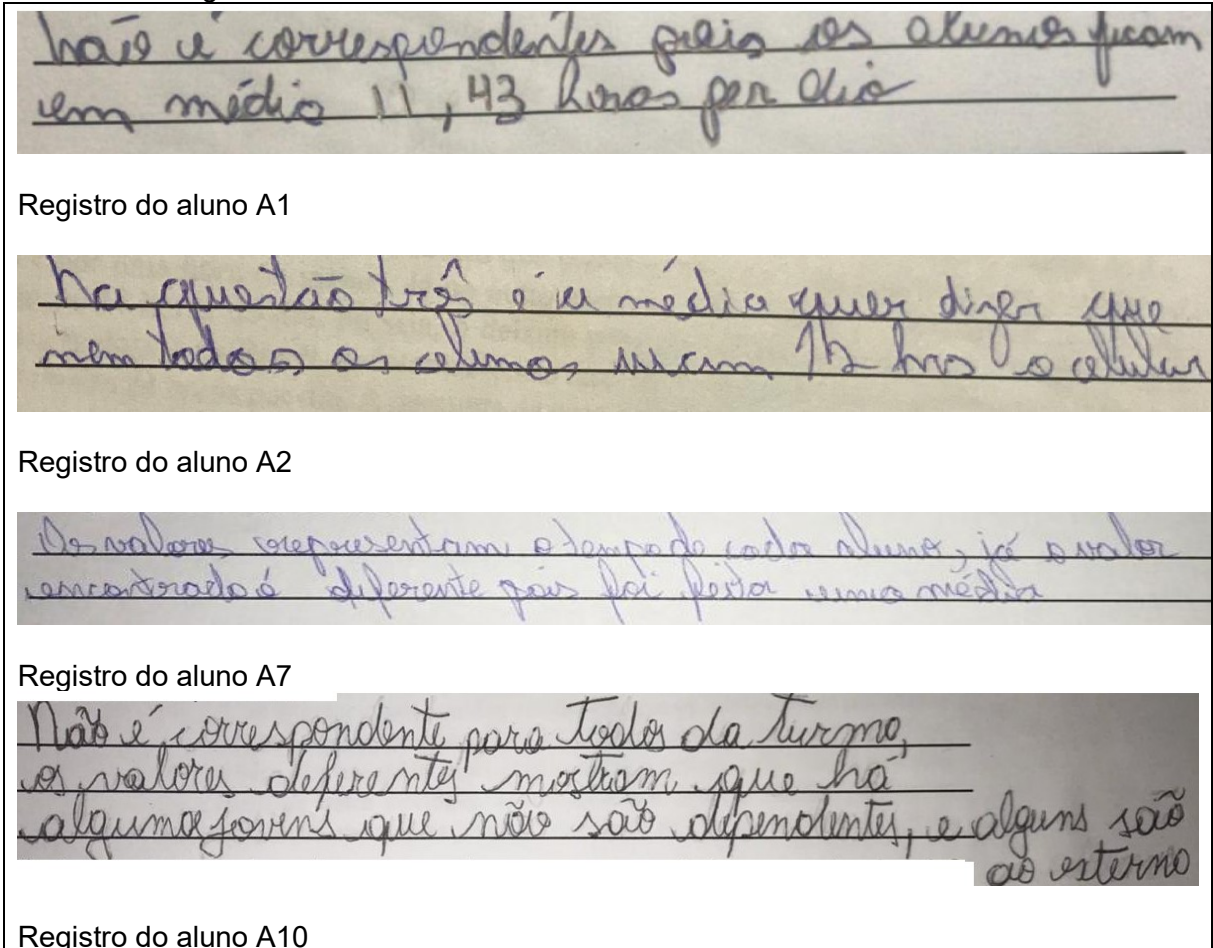 não é correspondentes pois os alunos ficam
em média 11,43 horas por dia
Registro do aluno A1
Na questão três é a média quer dizer que
nem todos os alunos usam 12 hrs o celular
Registro do aluno A2
Os valores representam o tempo de cada aluno, já o valor
encontrado é diferente pois foi feita uma média
Registro do aluno A7
Não é correspondente para todos da turma,
os valores deferentes mostram que há
alguns jovens que não são dependentes, e alguns são
ao externo
Registro do aluno A10